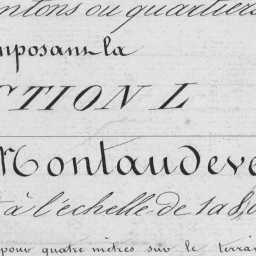 ntons ou quartiers
mposant la
CTION L
Montaudeve
t à l'échelle de 1 à
pour quatre mètres sur le terra